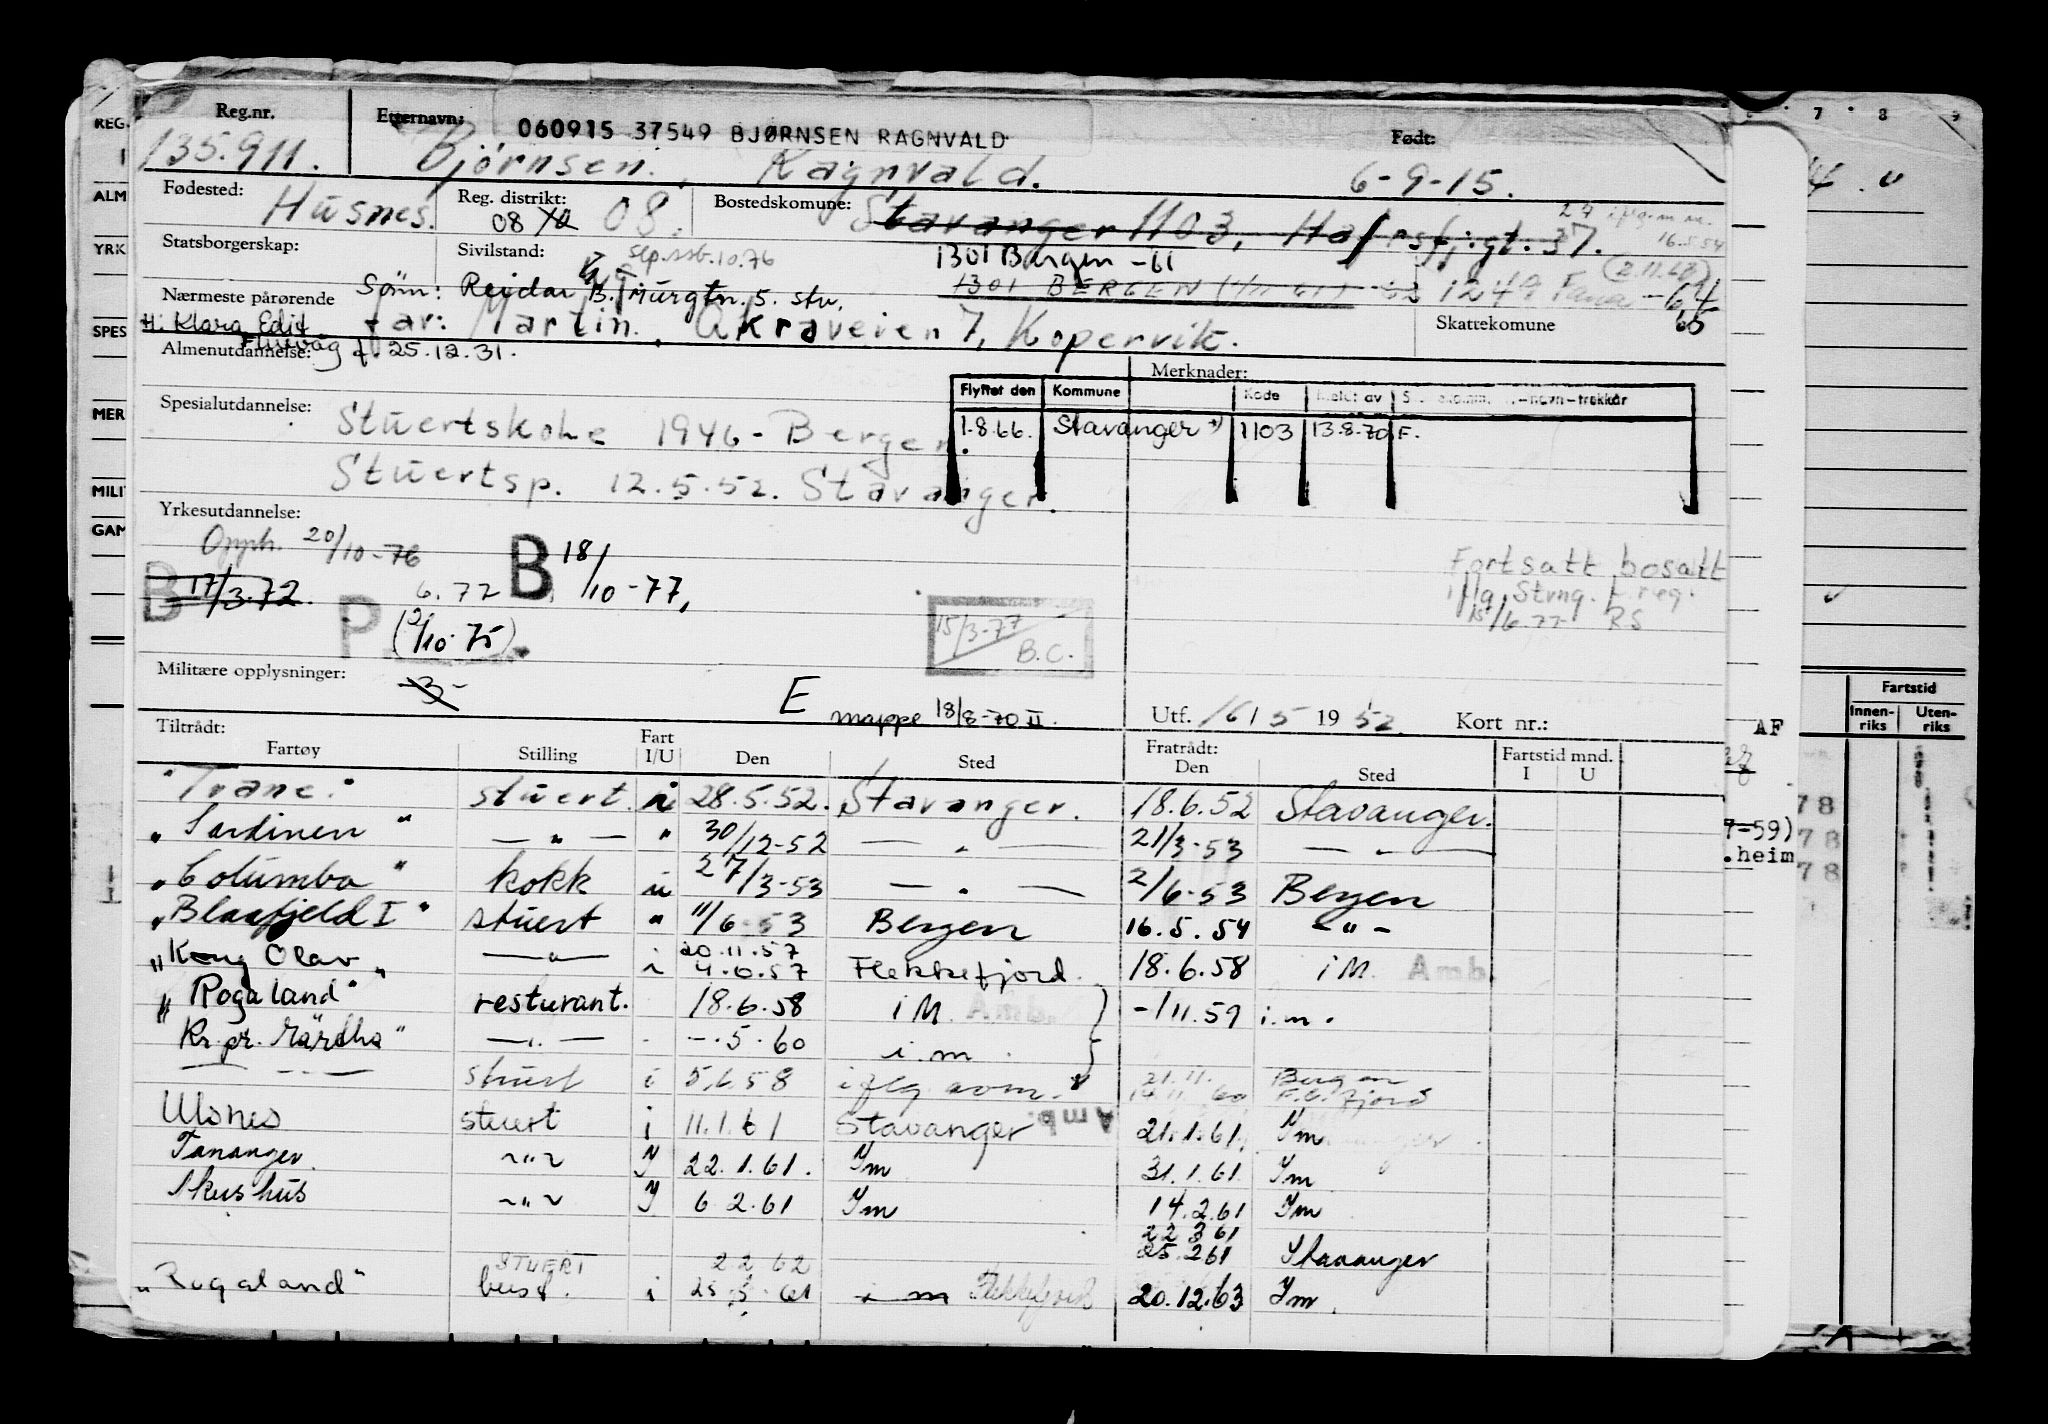 Reg.nr. Etternavn: 060915 37549 BJØRNSEN RAGNVALD Født:
135.911. Bjørnsen, Ragnvald. 6-9-15.
Fødested: Husnes. Reg. distrikt: 08 08. Bostedskomune: Stavanger 1103, 37.
16.5.54
Statsborgerskap: Sivilstand: Sep. ssb. 10.76 1301 Bergen -61
Nærmeste pårørende Sønn: Reidar B. Murgtn. 5. stv. 1301 BERGEN 1249 Fana -64
(2.11.62)
H: Klara Edit far: Martin. Åkraveien 7, Kopervik. Skattekomune 65
Almenutdannelse: f. 25.12.31.
Merknader:
Flyttet den Kommune Kode Meldt av
Spesialutdannelse: Stuertskole 1946 - Bergen 1.8.66. Stavanger 1103 13.8.70 F.
Stuertsp. 12.5.52. Stavanger.
Yrkesutdannelse:
Opph. 20/10-76 B 18/10-77,
B 17/3.72. P 6.72
(2/10-75)
15/3-77 B.C.
Fortsatt bosatt
iflg. Stvng. f.reg.
15/6.77 RS
Militære opplysninger: -3-
E mappe 18/8-70 II. Utf. 16/5 1952 Kort nr.:
Tiltrådt: Fratrådt:
Fartøy Stilling Fart I/U Den Sted Den Sted Fartstid mnd. I U
"Trane." stuert. i 28.5.52. Stavanger. 18.6.52 Stavanger.
"Sardinen" — " — " 30/12-52 — " — 21/3-53 — " —
"Columba" kokk u 27/3-53 — " — 2/6-53 Bergen
"Blaafjeld I" stuert " 11/6-53 Bergen 16.5.54 - " -
"Kong Olav" — " — i 20.11.57 4.6.57 Flekkefjord. 18.6.58 i M. Amb.
"Rogaland" resturant. 18.6.58 i M. Amb. -/11.59 i.m.
Kr. pr. Märtha" — " — -.5.60 i.m.
— " — stuert i 5.6.58 iflg. 21.11. Bergen
Ulsnes stuert i 11.1.61 Stavanger Amb. 21.1.61. Ym
Tananger ~"~ Y 22.1.61. Ym 31.1.61 Ym
Akershus ~"~ Y 6.2.61 Ym 14.2.61 Ym
22 3 61
25.261 Stavanger
"Rogaland" STUERT best. i 2 2 62 i m Flekkefjord 20.12.63 Ym.
REG.
ALM
YRK
SPES
MER
MILI
GAM
7 8 9
Fartstid
Innen-riks Uten-riks
AF
7-59)
.heim
78
78
78